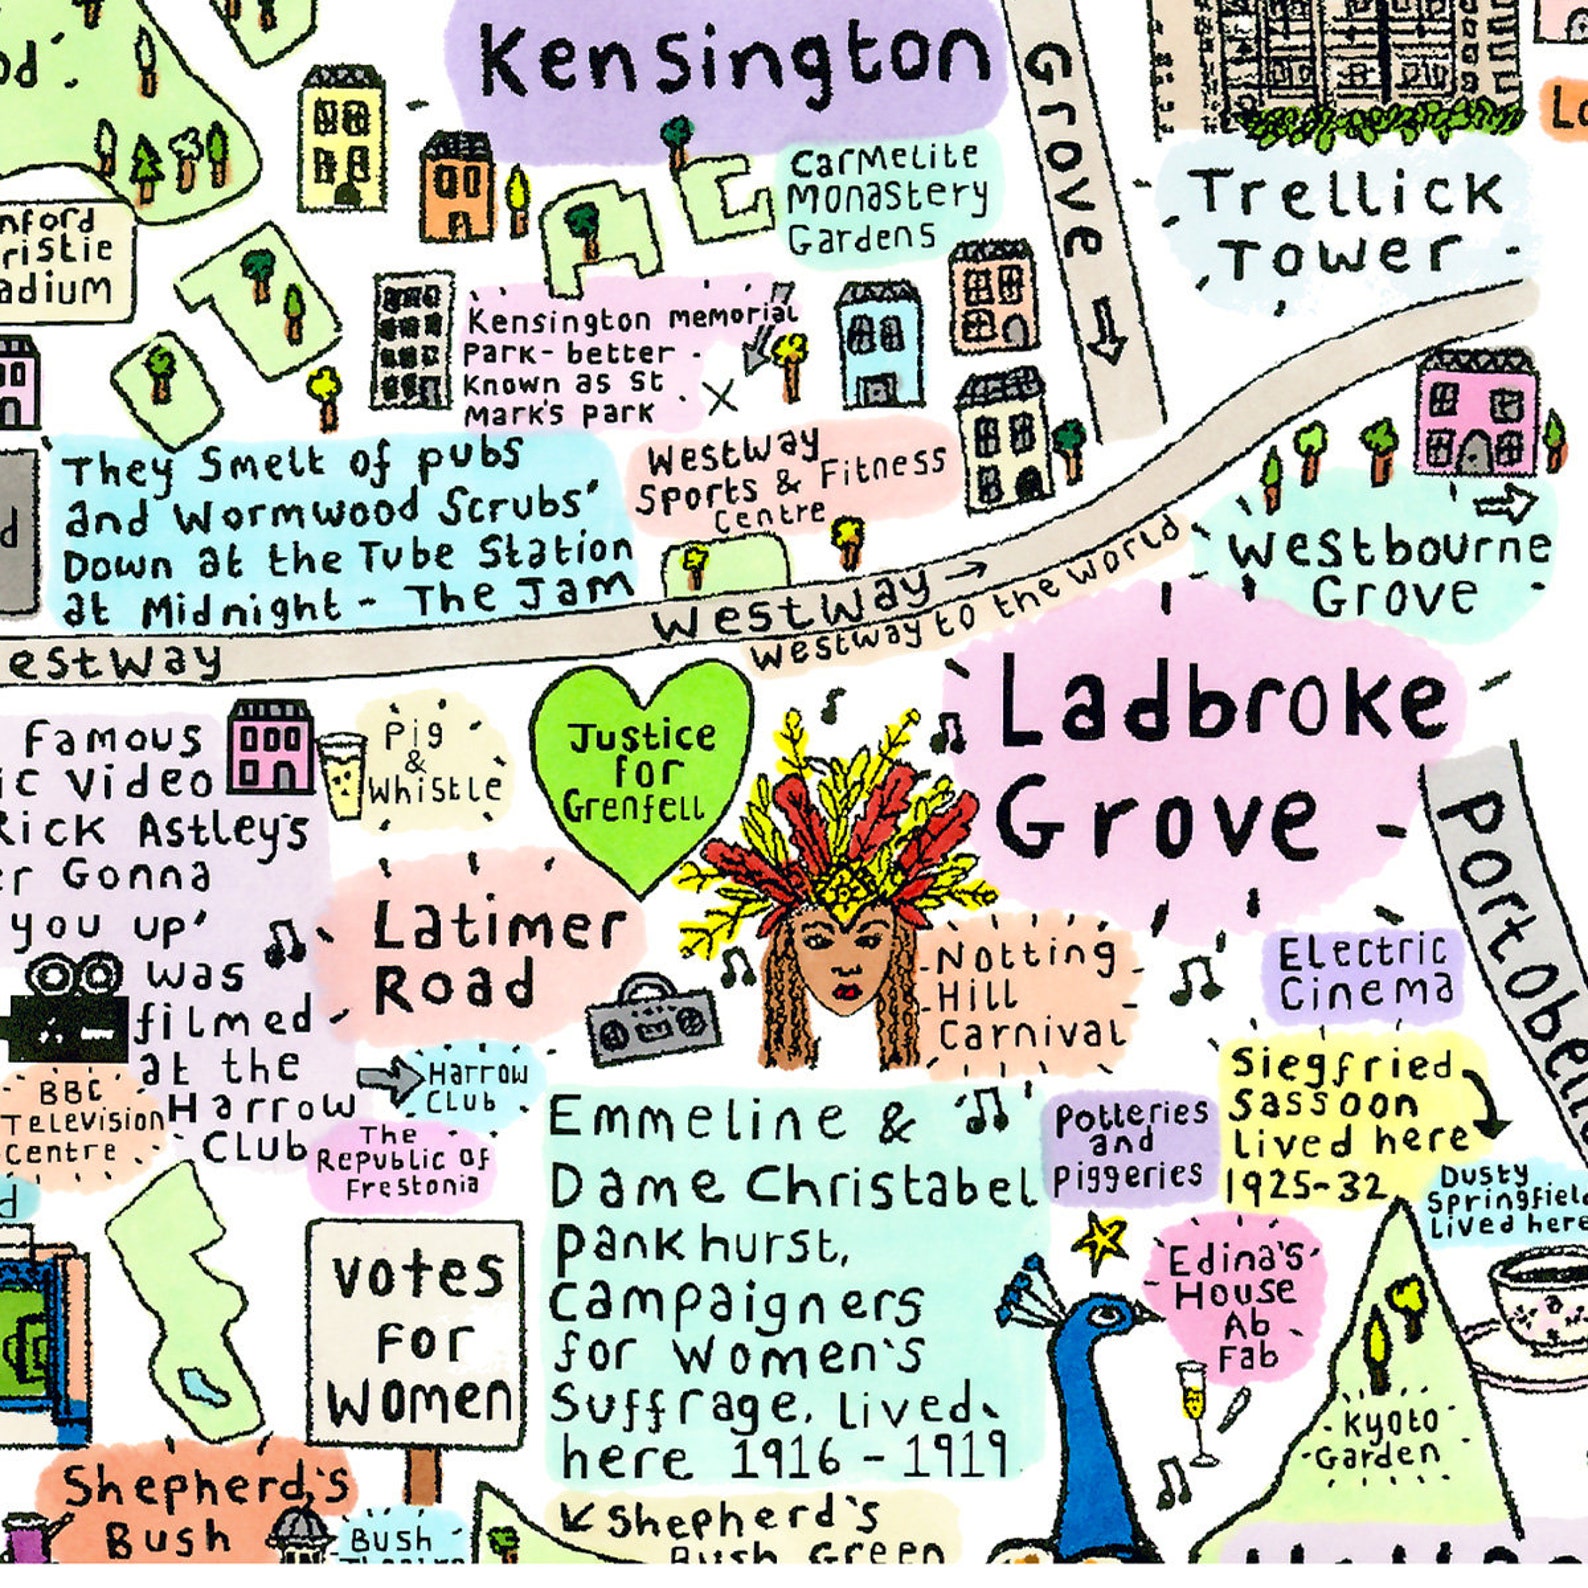 Kensington
GROVE
Trellick
Tower
Carmelite
Monastery
Gardens
Kensington memorial
Park - better
Known as St
Mark's park
Westway
Sports & Fitness
Centre
'They Smelt of pubs
and Wormwood Scrubs'
Down at the Tube Station
at Midnight - The Jam
Westway
Westway to the World
Westbourne
Grove
estway
Ladbroke
Grove
Famous
Video
Rick Astley's
Gonna
you up'
was
filmed
at the
Harrow
Club
Pig
&
Whistle
Justice
for
Grenfell
Latimer
Road
Notting
Hill
Carnival
Electric
Cinema
Portobell
BBC
Television
Centre
Harrow
Club
The
Republic of
Frestonia
Emmeline &
Dame Christabel
Pankhurst,
Campaigners
for Women's
Suffrage, lived
here 1916 - 1919
Potteries
and
Piggeries
Siegfried
Sassoon
lived here
1925-32
Dusty
Springfield
Lived here
Edina's
House
Ab
Fab
Votes
For
Women
Kyoto
Garden
Shepherd's
Bush
Bush
Shepherd's
Bush Green